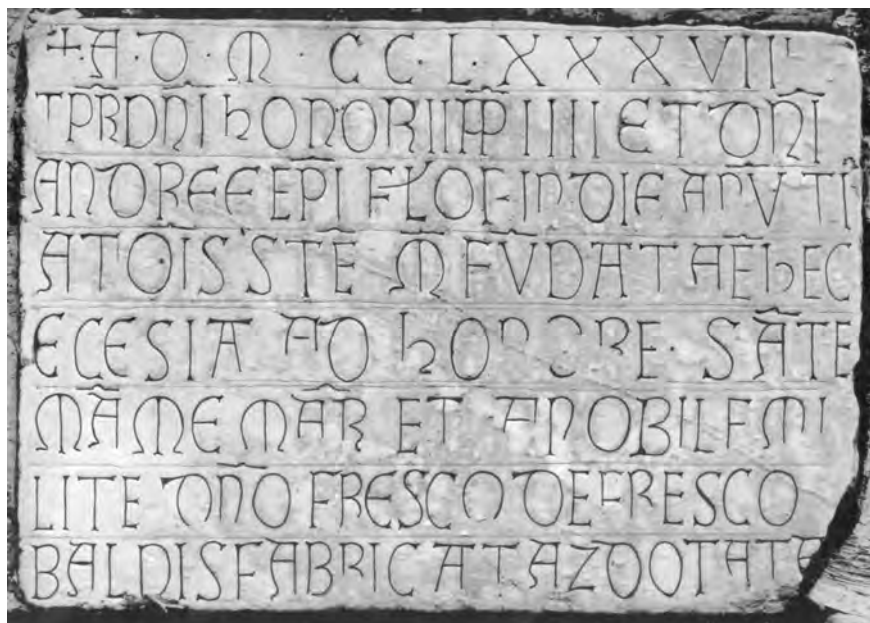 +·A·D·M·CC·L·XXXVII
TPR DNI hONORII PP IIII ET DNI
ANDREE EPI FLOF IN DIE ANVTI
ATOIS STE M FVDATA E hEC
ECESIA AD hONORE·SATE
MAME MAR ET A NOBILE MI
LITE DNO FRESCO DE FRESCO
BALDIS FABRICATA Z DOTATA